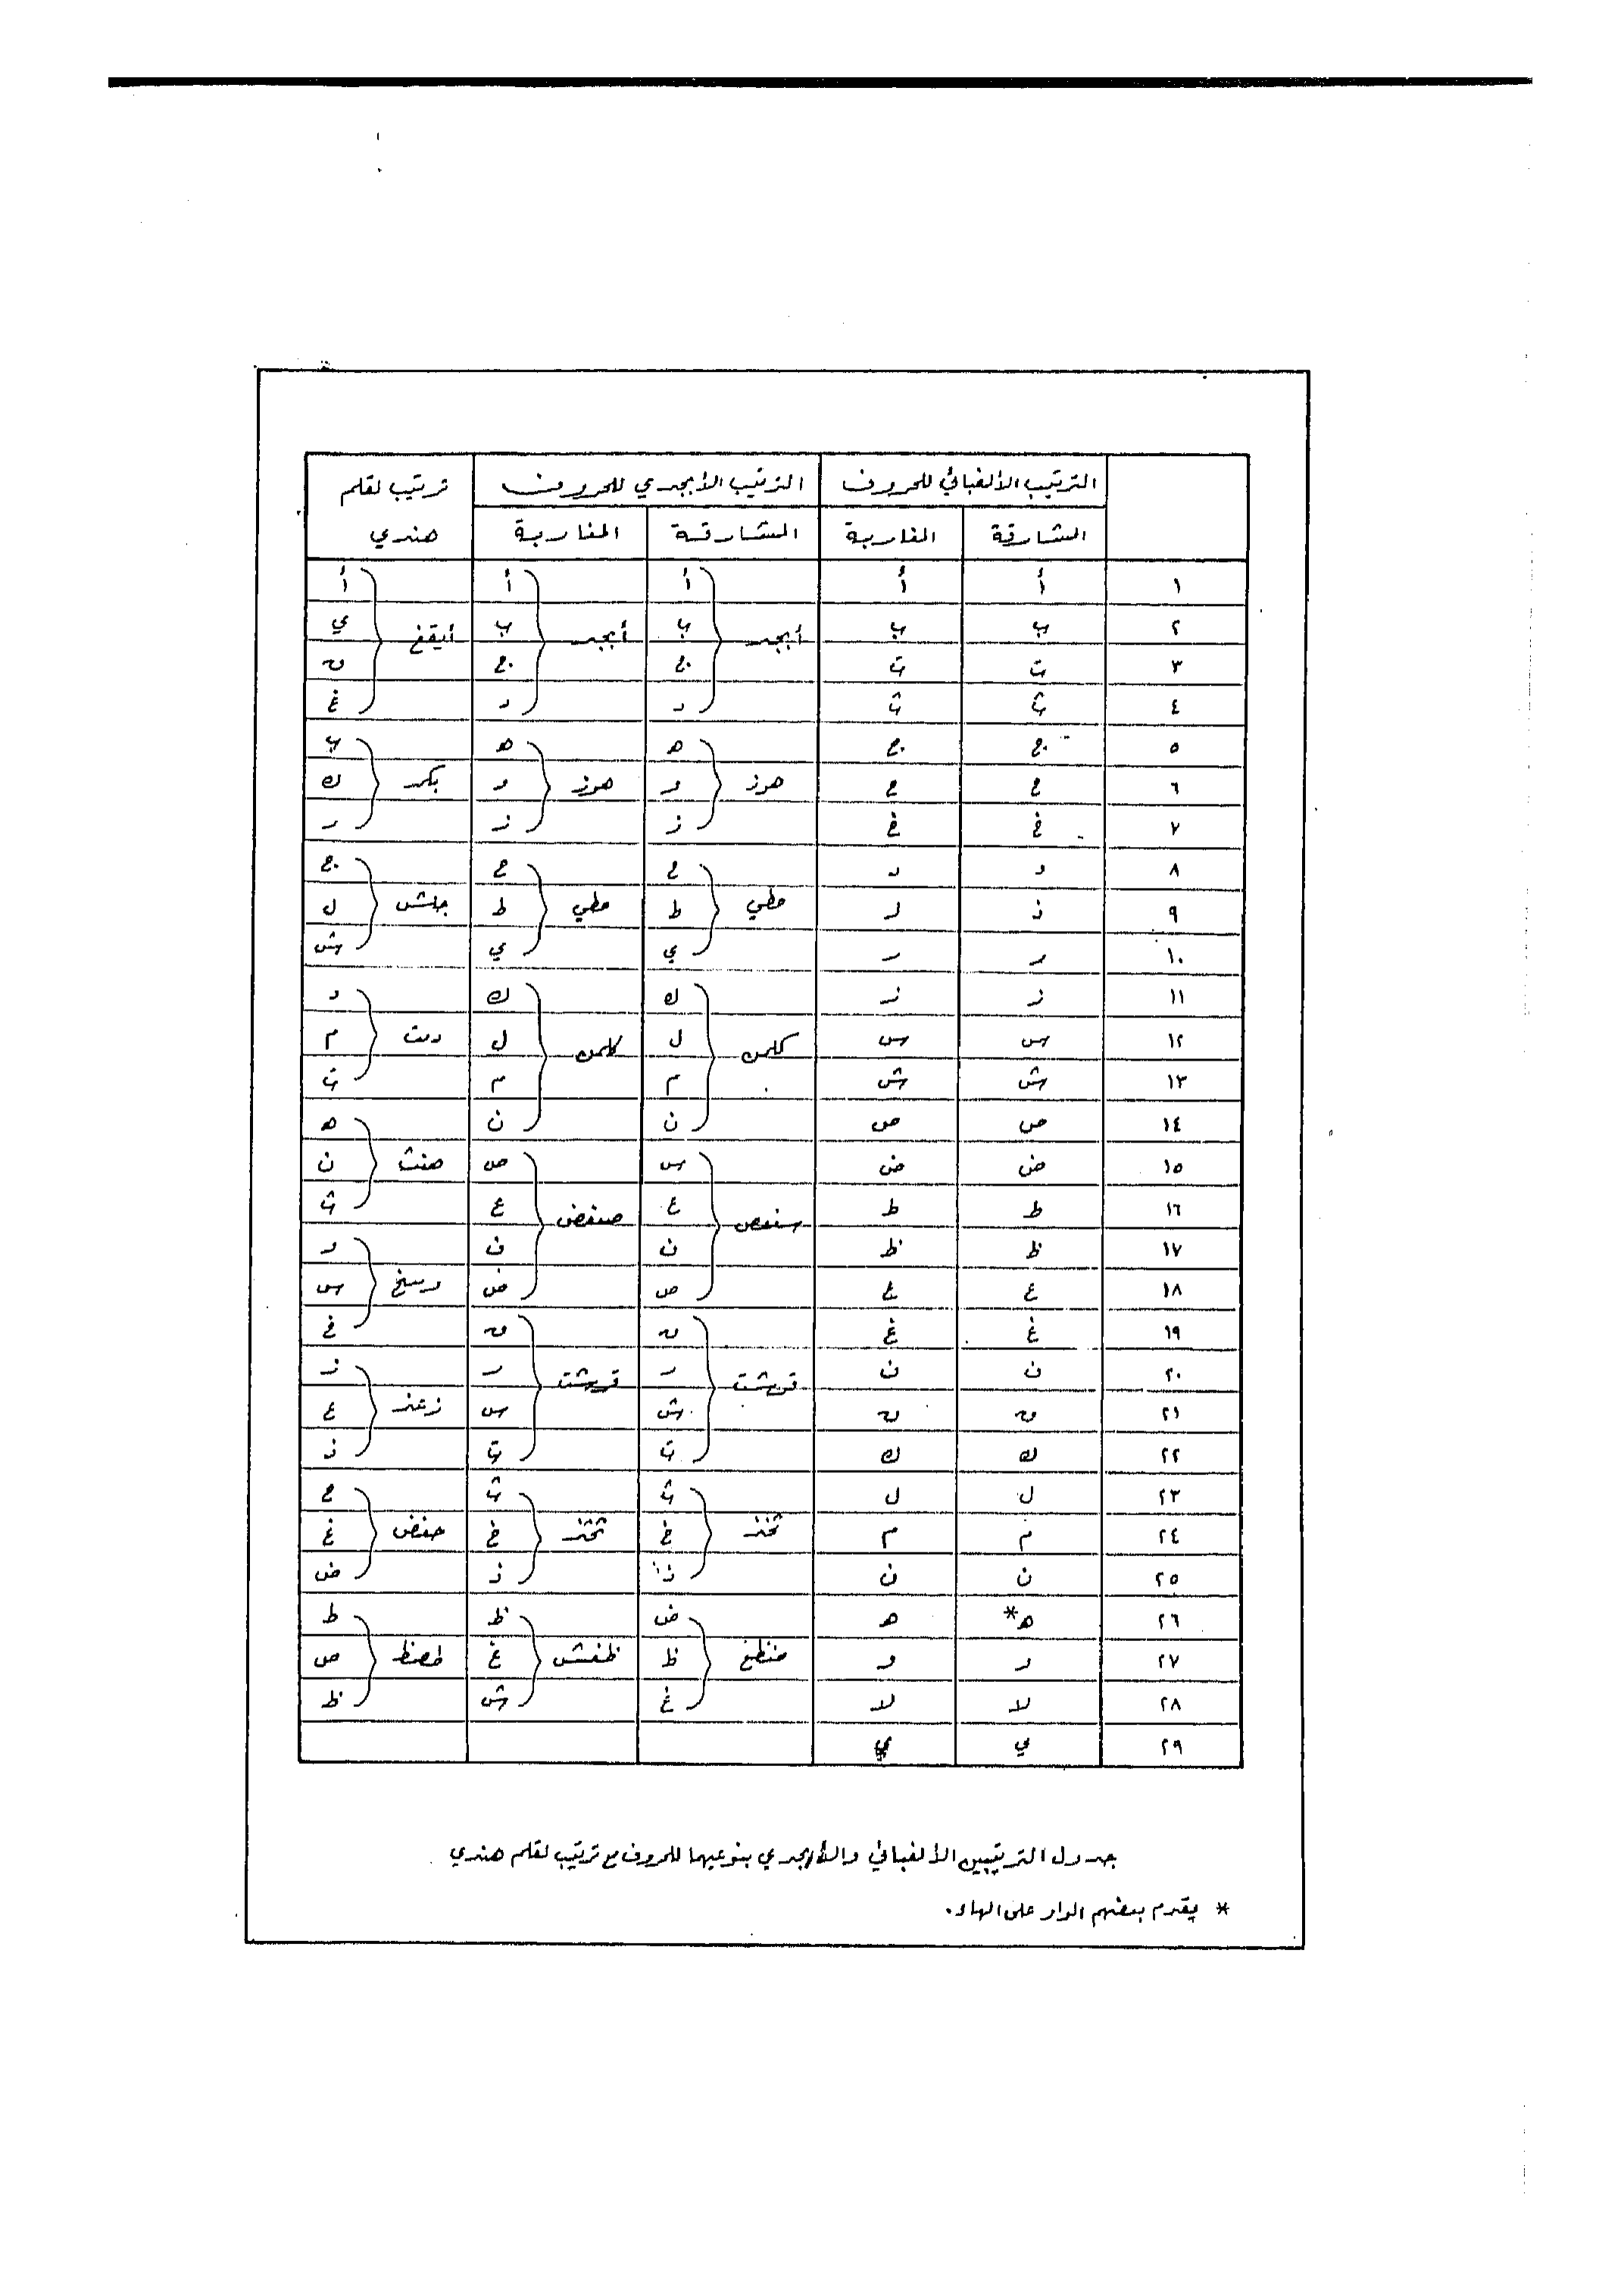 الترتيب الألفبائي للحروف الترتيب الأبجدي للحروف ترتيب لقلم هندي
المشارقة المغاربة المشارقة المغاربة
١ أ أ أ أ أ
٢ ب ب ب أبجد ب أبجد ي أيقغ
٣ ت ت ج ج ق
٤ ث ث د د غ
٥ ج ج ه ه ب
٦ ح ح و هوز و هوز ك بكر
٧ خ خ ز ز ر
٨ د د ح ح ج
٩ ذ ذ ط حطي ط حطي ل جلش
١٠ ر ر ي ي ش
١١ ز ز ك ك د
١٢ س س ل كلمن ل كلمن م دمت
١٣ ش ش م م ت
١٤ ص ص ن ن ه
١٥ ض ض س ص ن هنث
١٦ ط ط ع سعفص ع صعفض ث
١٧ ظ ظ ف ف و
١٨ ع ع ص ض س وسخ
١٩ غ غ ق ق خ
٢٠ ف ف ر قرشت ر قرست ز
٢١ ق ق ش س ع زعذ
٢٢ ك ك ت ت ذ
٢٣ ل ل ث ث ح
٢٤ م م خ ثخذ خ ثخذ غ حفض
٢٥ ن ن ذ ذ ض
٢٦ ه* ه ض ظ ط
٢٧ و و ظ ضظغ غ ظغش ص طصظ
٢٨ لا لا غ ش ظ
٢٩ ي ي
جدول الترتيبين الألفبائي والأبجدي بنوعيهما للحروف مع ترتيب لقلم هندي
* يقدم بعضهم الواو على الهاء.